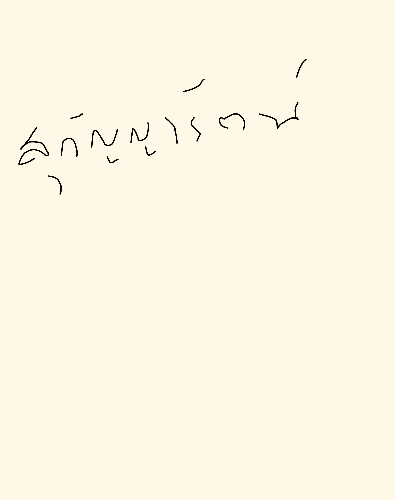 สุกัญญารัตน์